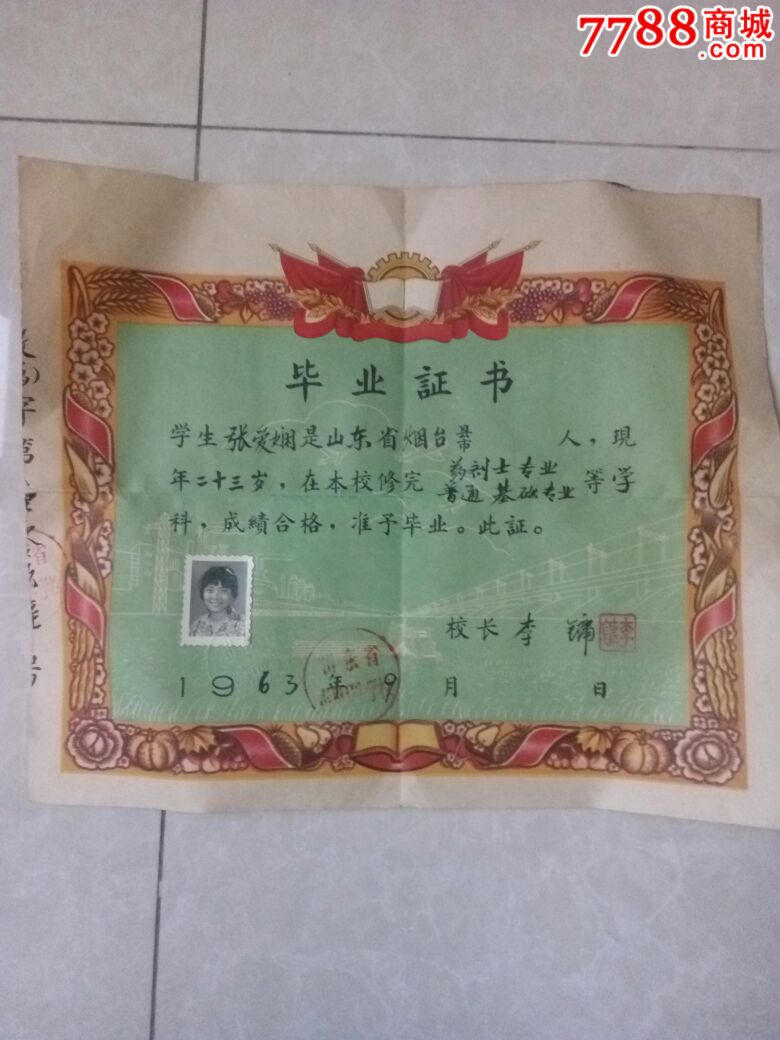 7788商城
.com
毕业証书
学生张爱娴是山东省烟台县市人，現
年二十三岁，在本校修完药剂士专业
普通基础专业等学
科，成績合格，准予毕业。此証。
校长李鏞
1963年9月 日
山东省
字第
号